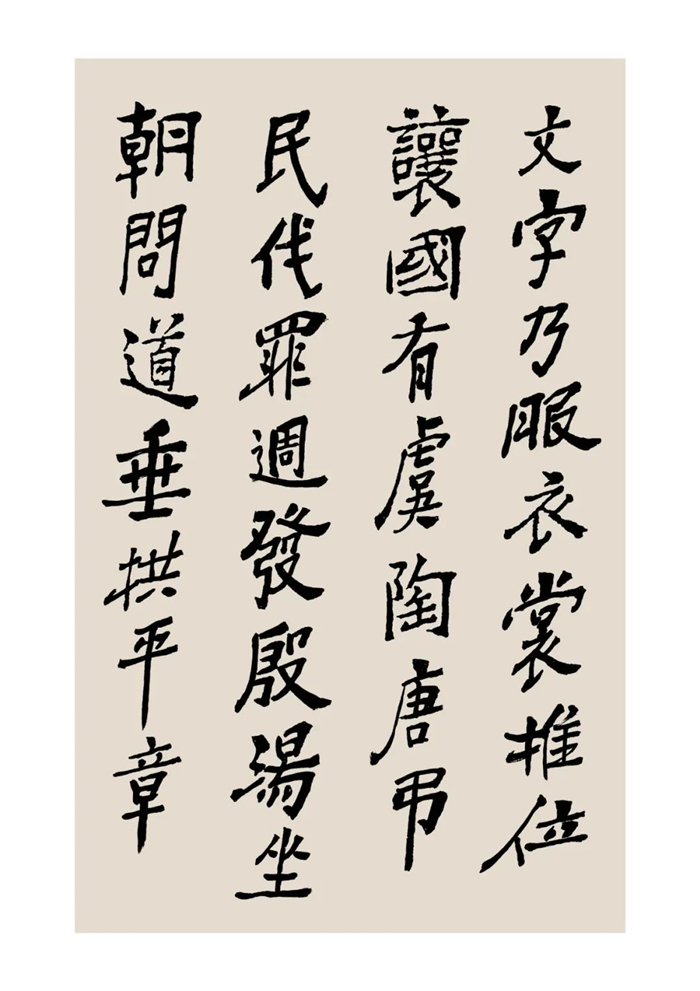 文字乃服衣裳推位
讓國有虞陶唐弔
民伐罪週發殷湯坐
朝問道垂拱平章